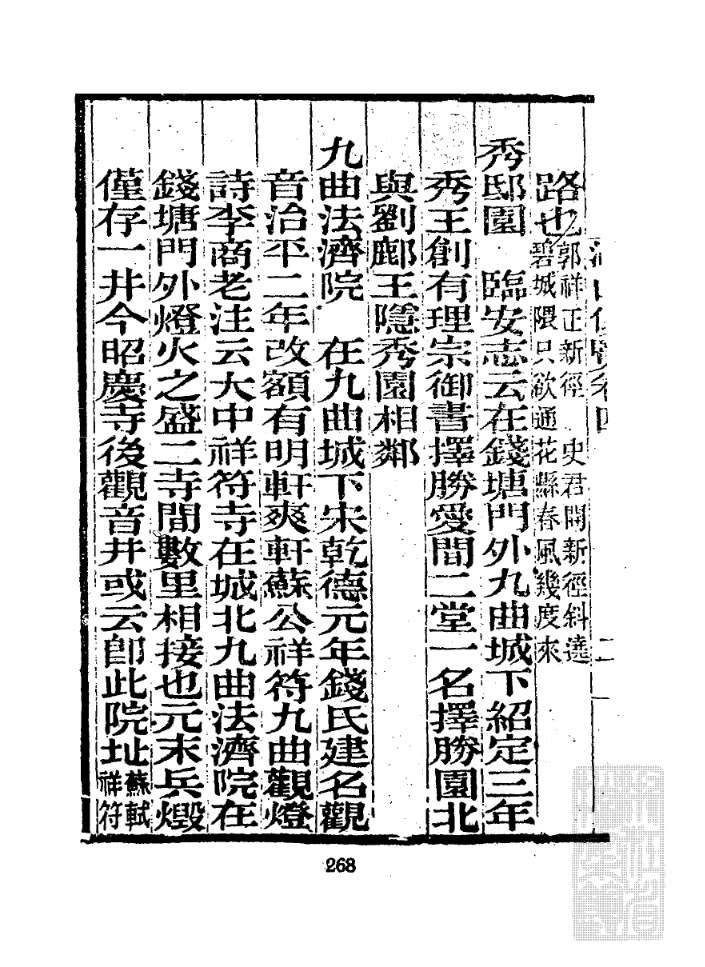 路也郭祥正新徑 史君開新徑斜遶
碧城隈只欲通花縣春風幾度來
秀邸園 臨安志云在錢塘門外九曲城下紹定三年
秀王創有理宗御書擇勝愛閒二堂一名擇勝園北
與劉鄜王隱秀園相鄰
九曲法濟院 在九曲城下宋乾德元年錢氏建名觀
音治平二年改額有明軒爽軒蘇公祥符九曲觀燈
詩李商老注云大中祥符寺在城北九曲法濟院在
錢塘門外燈火之盛二寺間數里相接也元末兵燬
僅存一井今昭慶寺後觀音井或云卽此院址蘇軾
祥符
268